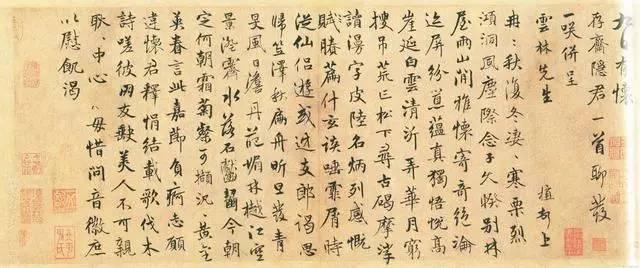 九日有懷
存齋隱君一首聊發
一咲併呈
雲林先生 上
冉冉秋復冬凄凄寒栗烈
澒洞風塵際念子久睽別林
屋兩山間雅懷寄奇絕淪
迹屏紛蘊真獨悟悅高
崖延白雲清沂弄華月窮
搜吊荒松下尋古碣摩挲
漫字皮陸名炳列感慨
賦勝篇什玄談唾霏屑時
從仙侶遊或近支郎謁思
歸笠澤秋扁舟昕旦發青
旻風日澹丹葩媚林樾江空
景澄霽水落石齧今朝
定何朝霜菊粲可擷況黃金
英眷言此嘉節負痾志願
違懷君釋悁結載歌伐木
詩嗟彼朋友歡美人不可親
耿耿中心毋惜間音徽庶
以慰飢渴